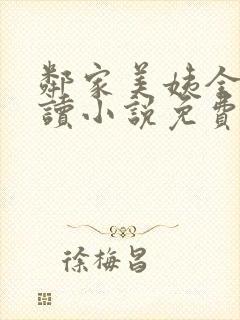 鄰家美姨全
讀小説免費
徐梅昌